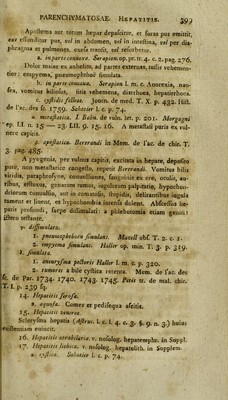 PARENCHYMATOSAE. HEPATITIS. 399
Apostema aut totum hepar depascitur, et foras pus emittit,
aut effunditur pus, vel in abdomen, vel in intestina, vel per dia-
phragma et pulmones. exesa transit, vel resorbetur.
a. in parte connexa. Serapion. op. pr. tr. 4. c. 2. pag. 276.
Dolor maius ex anhelitu, ad partes externas, tussis vehemen-
tior: empyema, pneumophthoë simulata.
b. in parte concava. Serapion l. m. c. Anorexia, nau-
sea, vomitus biliosus, sitis vehemens, diarrhoea, hepatirrhoea.
c. cystidis felleae. Journ. de med. T. X. p. 432. Hist.
de l'ac. des sc. 1759. Sabatier l. c. p. 74.
u. metastatica. I. Bohn. de vuln. let. p. 201. Morgagni
ep. LI. n. 15 — 23. LII. 9. 15. 16. A metastasi puris ex vul-
nere capitis.
ξ. apostatica. Bertrandi in Mem. de l'ac. de chir. T.
3. pag. 485.
A pyogenia, per vulnera capitis, excitata in hepate, deposito
pure, non metastatice congesto, repetit Bertrandi. Vomitus bilis
viridis, paraphrosyne, convulsiones, sanguinis ex ore, oculis, au-
ribus, effluxus, genarum rumor, iugularum palpitatio, hypochon-
driorum convulsio, aut in comatosis, stupidis, delirantibus iugula
tument et livent, et hypochondria intensa dolent. Abscessus he-
patis profundi, saepe dissimulati: a phlebotomia etiam genuini
ictero testante.
y. dissimulata.
1. pneumophthoen simulans. Maxell obs. T. 2. c. 1.
2. empyema simulans. Haller op. min. T. 3. p. 319.
z. simulata.
1. aneurysma pectoris Haller l. m. c. p. 320.
2. tumoris a bile cystica retenta. Mem. de l'ac. des
sc. de Par. 1734. 1740. 1743. 1745. Petit tr. de mal. chir.
T. I. p. 239 sq.
14. Hepatitis serosa.
a. aquosa. Comes et pedisequa ascitis.
15. Hepatitis venerea.
Sclerysma hepatis (Astruc. l. c. l. 4. c. 3. §. 9. n. 3.) huius
existentiam euincit.
16. Hepatitis serobilaria. v. nosolog. hepatemphr. in Suppl.
17. Hepatitis lithica. v. nosolog. hepatolith. in Supplem.
a. cystica. Sabatier l. c. p. 74.